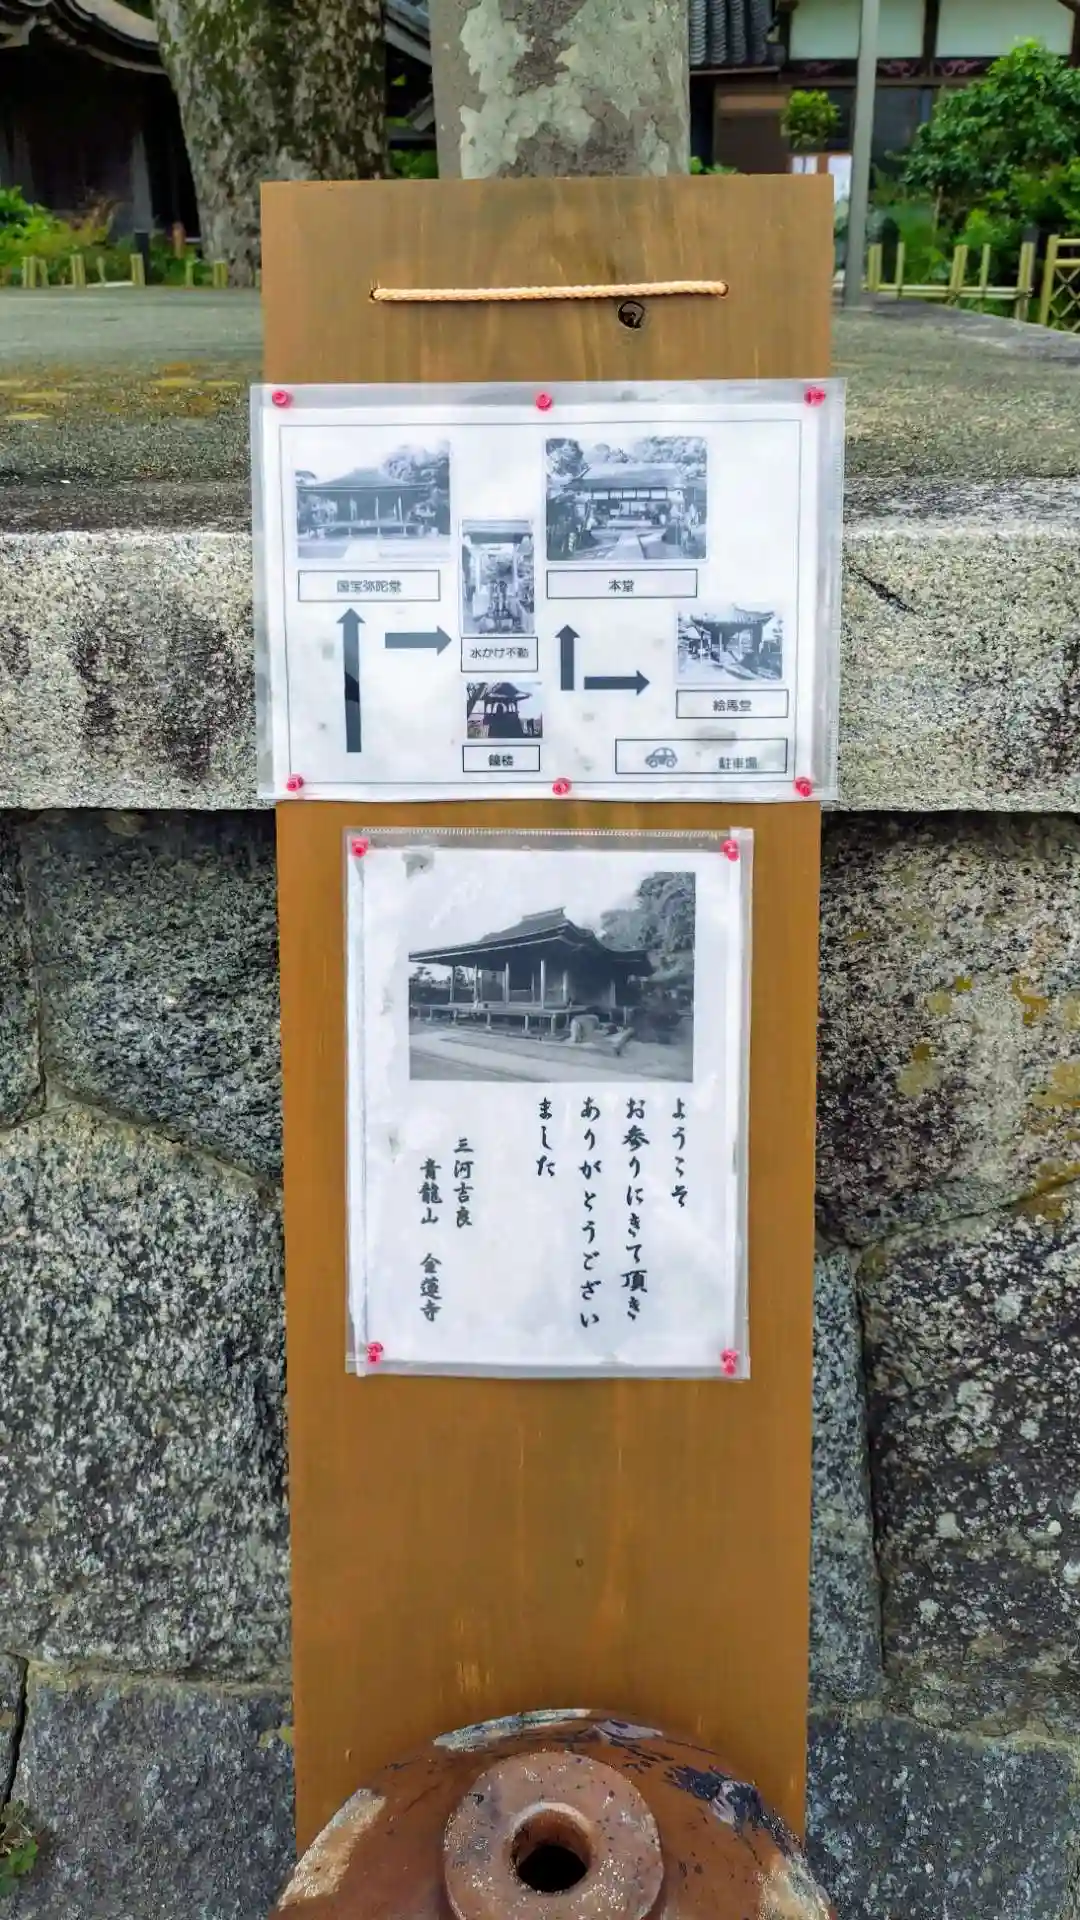 国宝弥陀堂
本堂
水かけ不動
絵馬堂
鐘楼
駐車場
ようこそ
お参りにきて頂き
ありがとうござい
ました
三河吉良
青龍山 金蓮寺